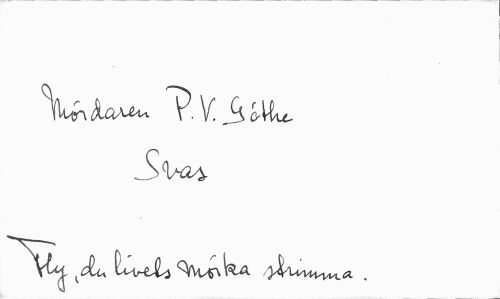 Mördaren P. V. Göthe
Svas
Fly, du livets mörka strimma.